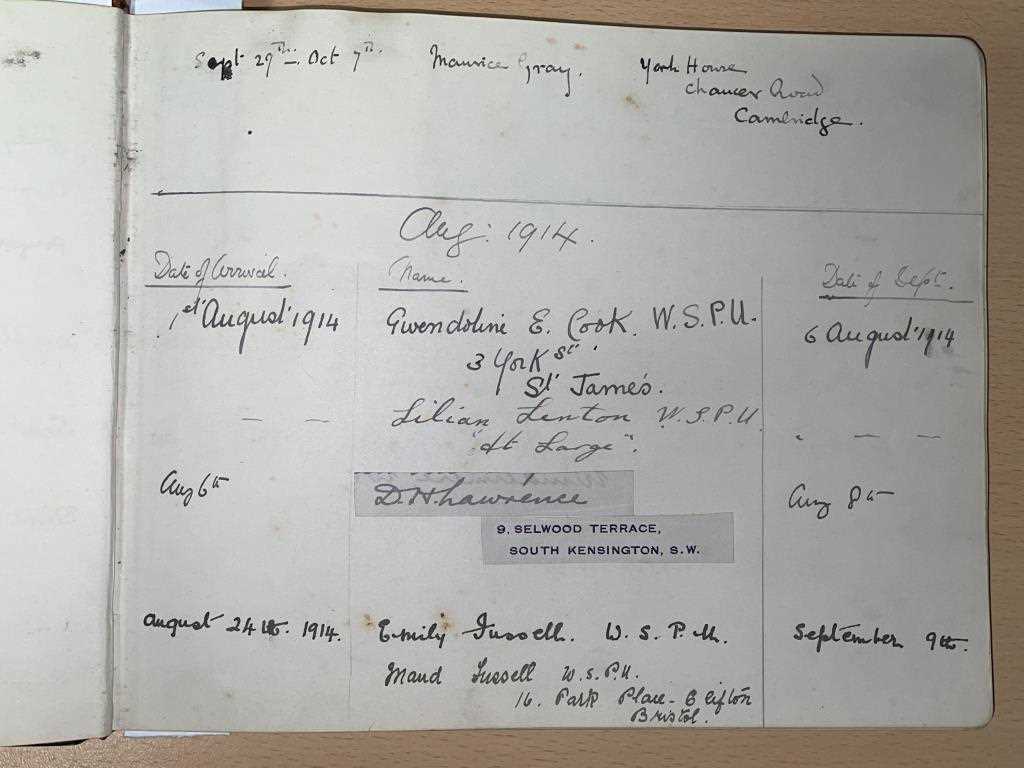 Sept 29th – Oct 7th. Maurice Gray. York House
Chaucer Road
Cambridge.
Aug: 1914.
Date of Arrival. Name. Date of Dept.
1st August 1914 Gwendoline E. Cook. W.S.P.U. 6 August 1914
3 York St
St James.
— — Lilian Lenton W.S.P.U. — —
"At Large".
Aug 6th D. H. Lawrence Aug 8th
9, SELWOOD TERRACE,
SOUTH KENSINGTON, S.W.
August 24th. 1914. Emily Fussell. W.S.P.U. September 9th.
Maud Fussell W.S.P.U.
16. Park Place – Clifton
Bristol.